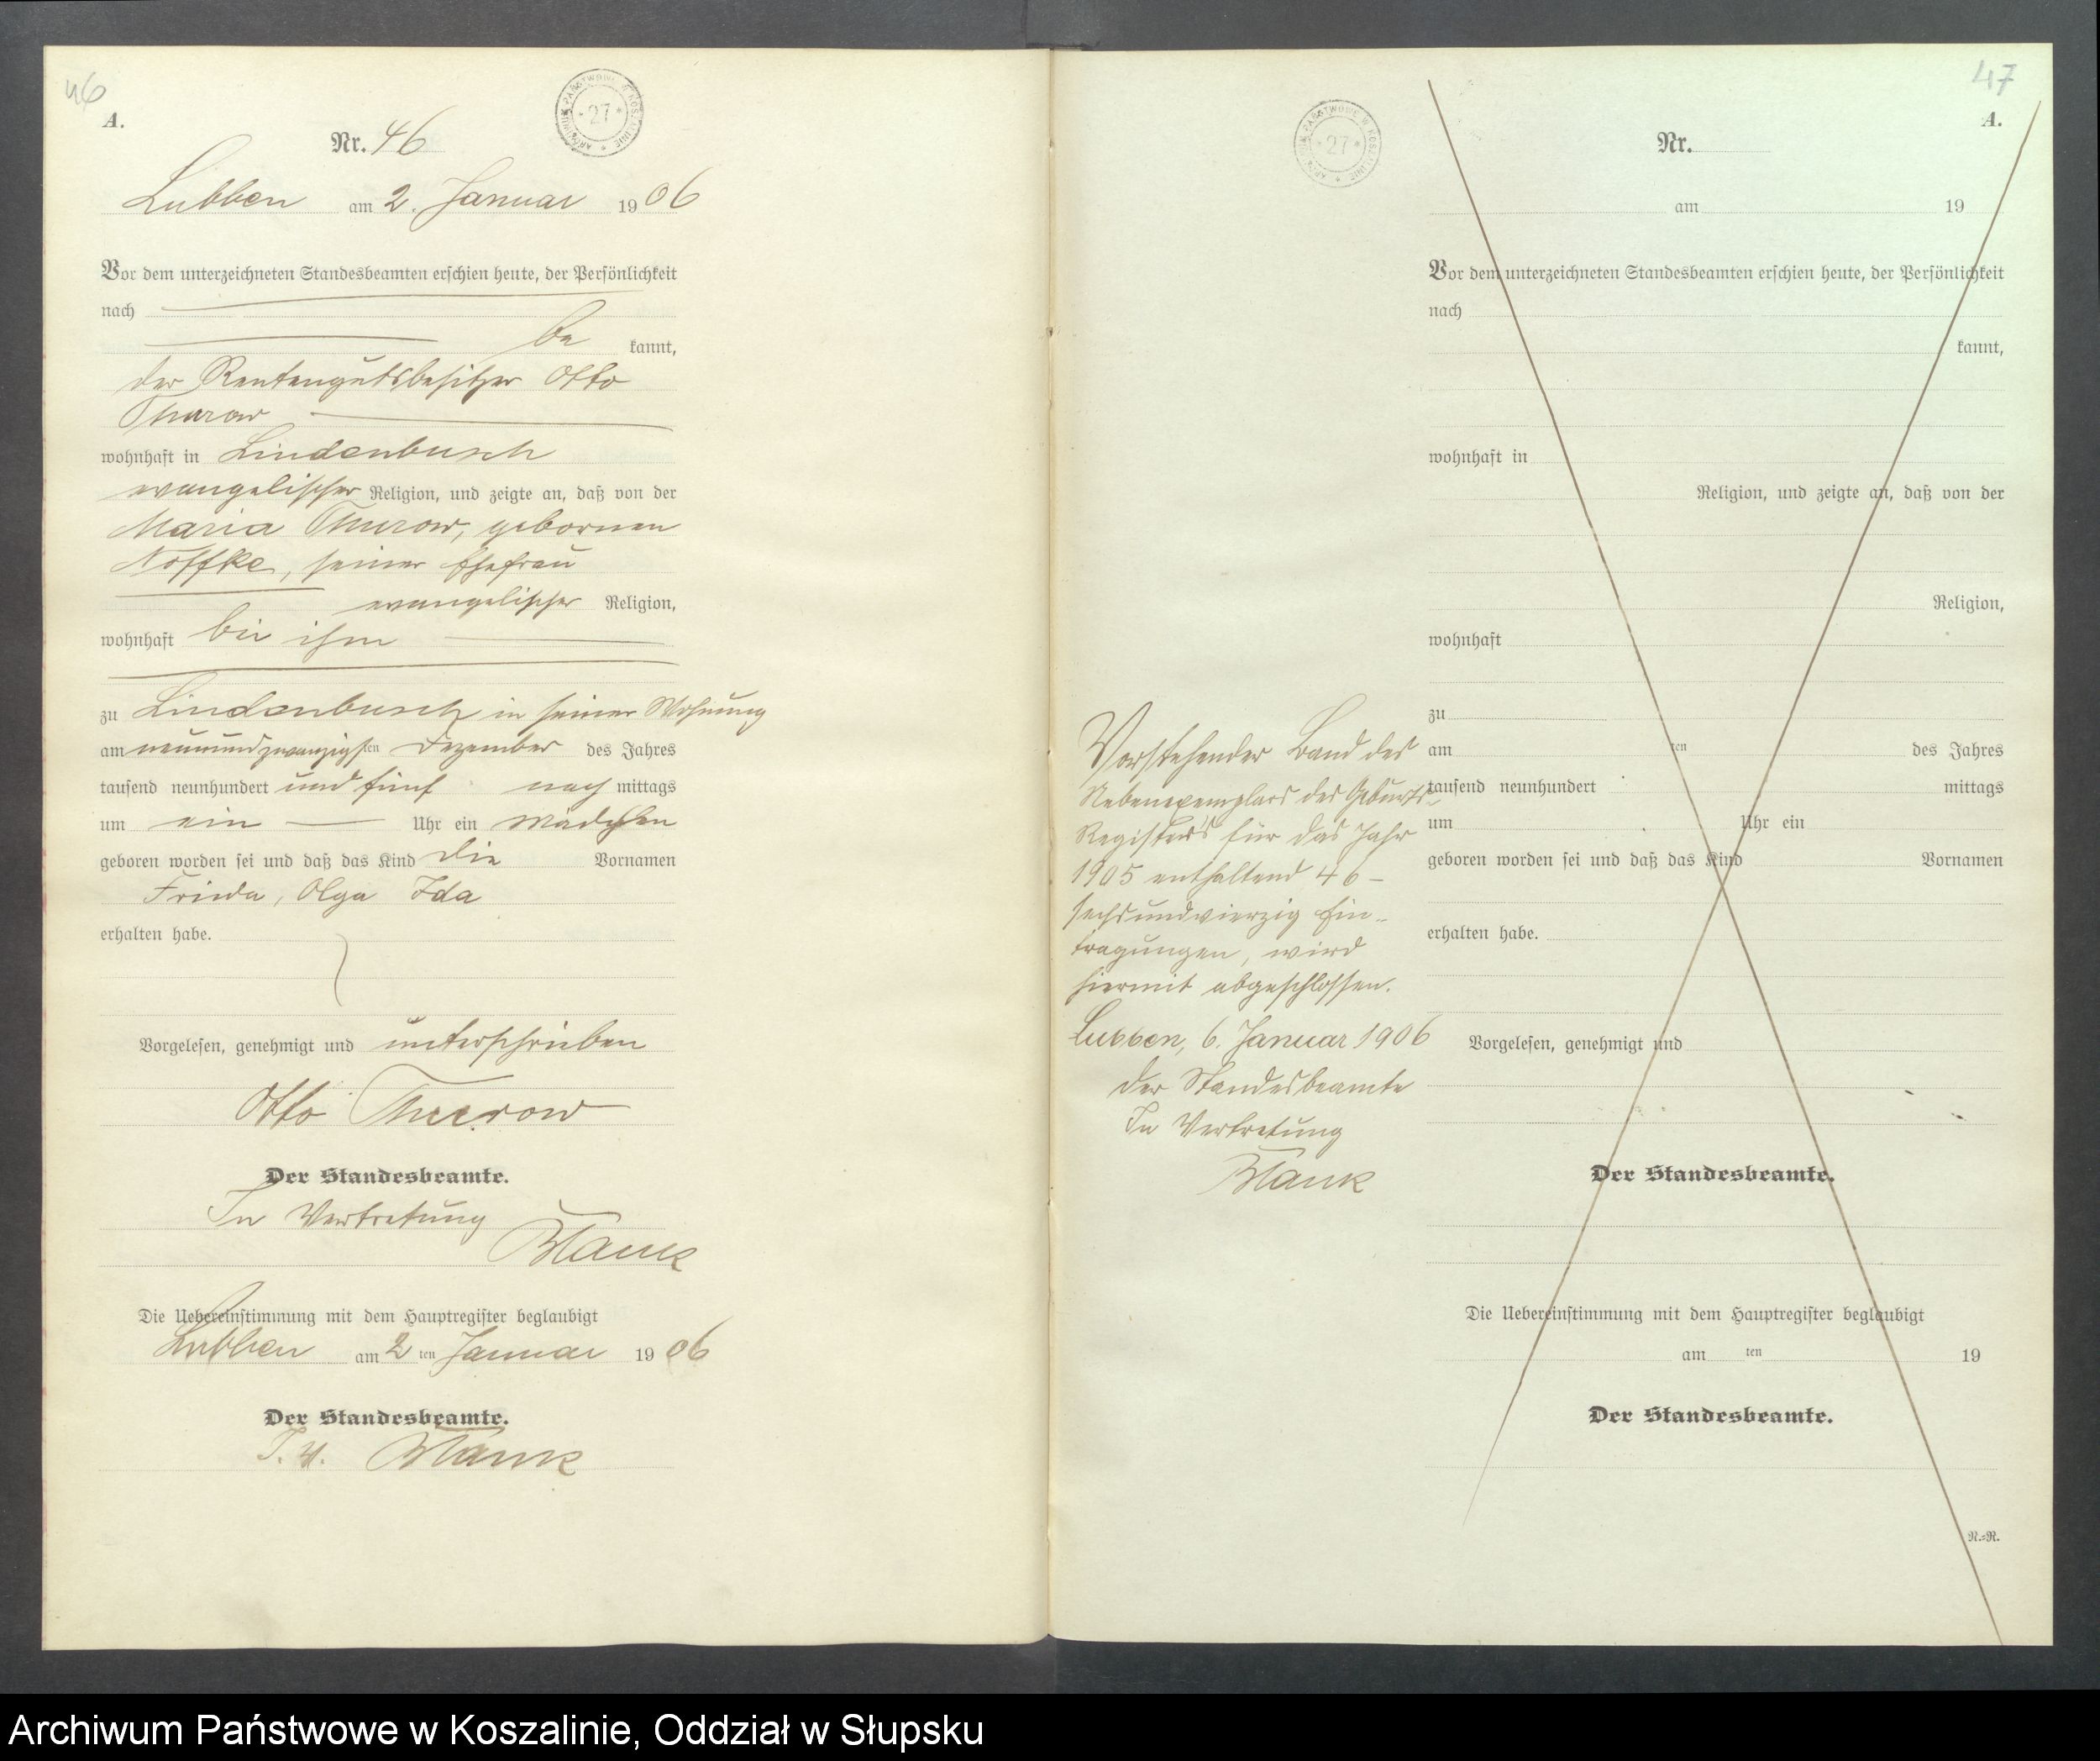 46
A.
Nr. 46
Lubben am 2. Januar 1906
Vor dem unterzeichneten Standesbeamten erschien heute, der Persönlichkeit
nach
be kannt,
der Rentengutsbesitzer Otto
Thurow
wohnhaft in Lindenbusch
evangelischer Religion, und zeigte an, daß von der
Maria Thurow, gebornen
Noffke, seiner Ehefrau
evangelischer Religion,
wohnhaft bei ihm
zu Lindenbusch in seiner Wohnung
am neunundzwanzigsten Dezember des Jahres
tausend neunhundert und fünf nach mittags
um ein Uhr ein Mädchen
geboren worden sei und daß das Kind die Vornamen
Frieda, Olga Ida
erhalten habe.
Vorgelesen, genehmigt und unterschrieben
Otto Thurow
Der Standesbeamte.
In Vertretung
Blank
Die Uebereinstimmung mit dem Hauptregister beglaubigt
Lubben am 2 ten Januar 1906
Der Standesbeamte.
I. V. Blank
ARCHIWUM PAŃSTWOWE W KOSZALINIE * 27 *
47
A.
ARCHIWUM PAŃSTWOWE W KOSZALINIE * 27 *
Nr.
am 19
Vor dem unterzeichneten Standesbeamten erschien heute, der Persönlichkeit
nach
kannt,
wohnhaft in
Religion, und zeigte an, daß von der
Religion,
wohnhaft
zu
am ten des Jahres
tausend neunhundert mittags
um Uhr ein
geboren worden sei und daß das Kind Vornamen
erhalten habe.
Vorgelesen, genehmigt und
Der Standesbeamte.
Die Uebereinstimmung mit dem Hauptregister beglaubigt
am ten 19
Der Standesbeamte.
N.=R.
Vorstehender Band des
Nebenexemplars des Geburts-
Registers für das Jahr
1905 enthaltend 46 –
sechsundvierzig Ein-
tragungen, wird
hiermit abgeschlossen.
Lubben, 6. Januar 1906
Der Standesbeamte
In Vertretung
Blank
Archiwum Państwowe w Koszalinie, Oddział w Słupsku